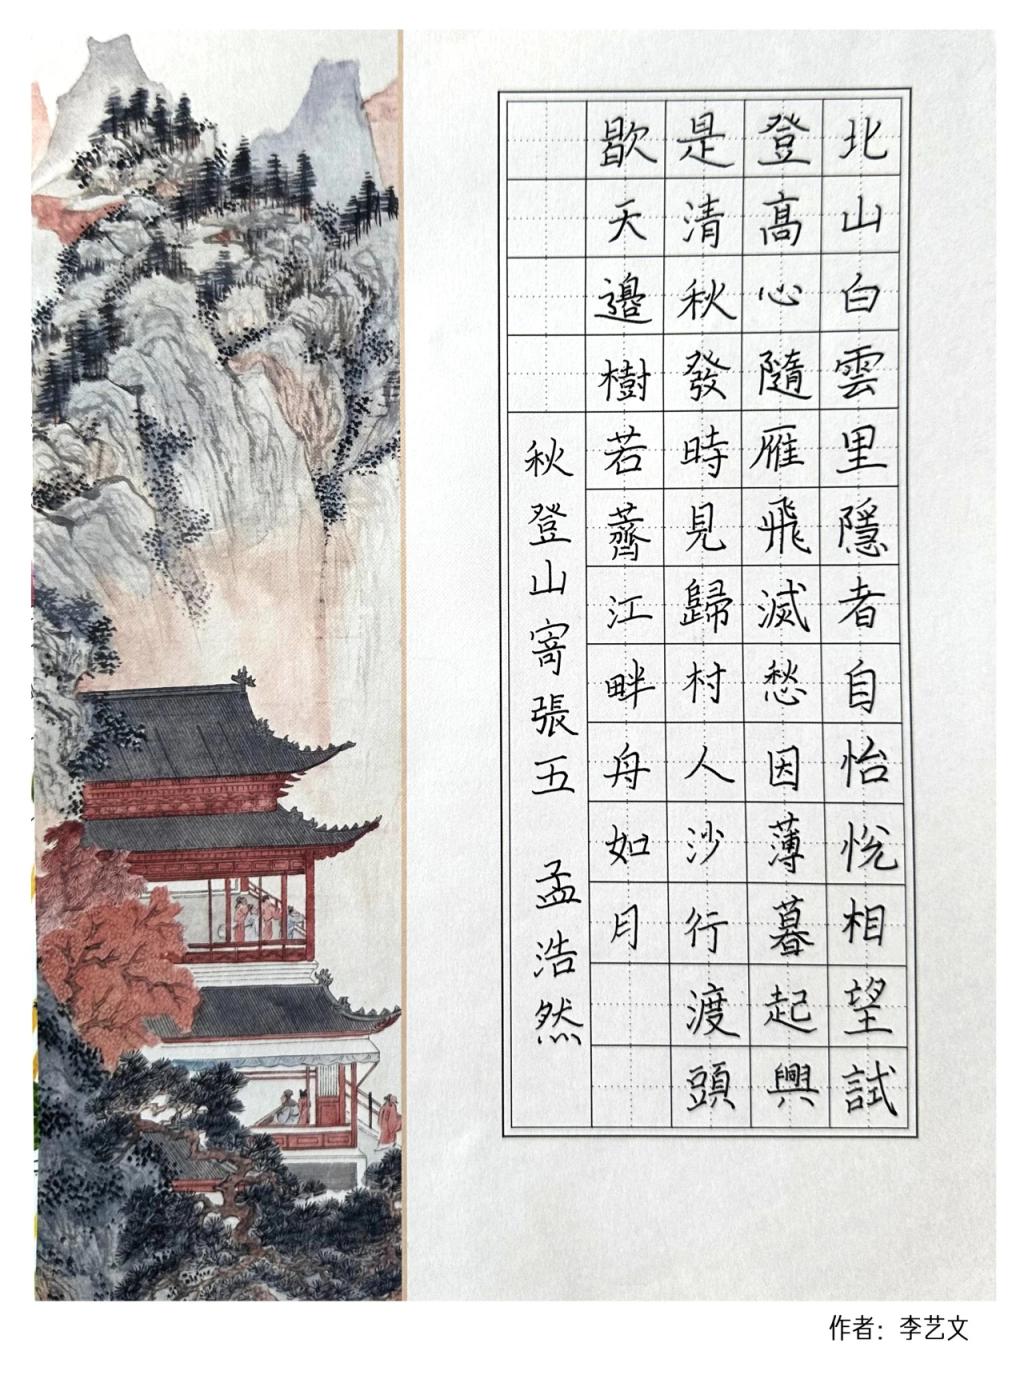 北山白雲里隱者自怡悅相望試
登高心隨雁飛滅愁因薄暮起興
是清秋發時見歸村人沙行渡頭
歇天邊樹若薺江畔舟如月
秋登山寄張五 孟浩然
作者：李艺文